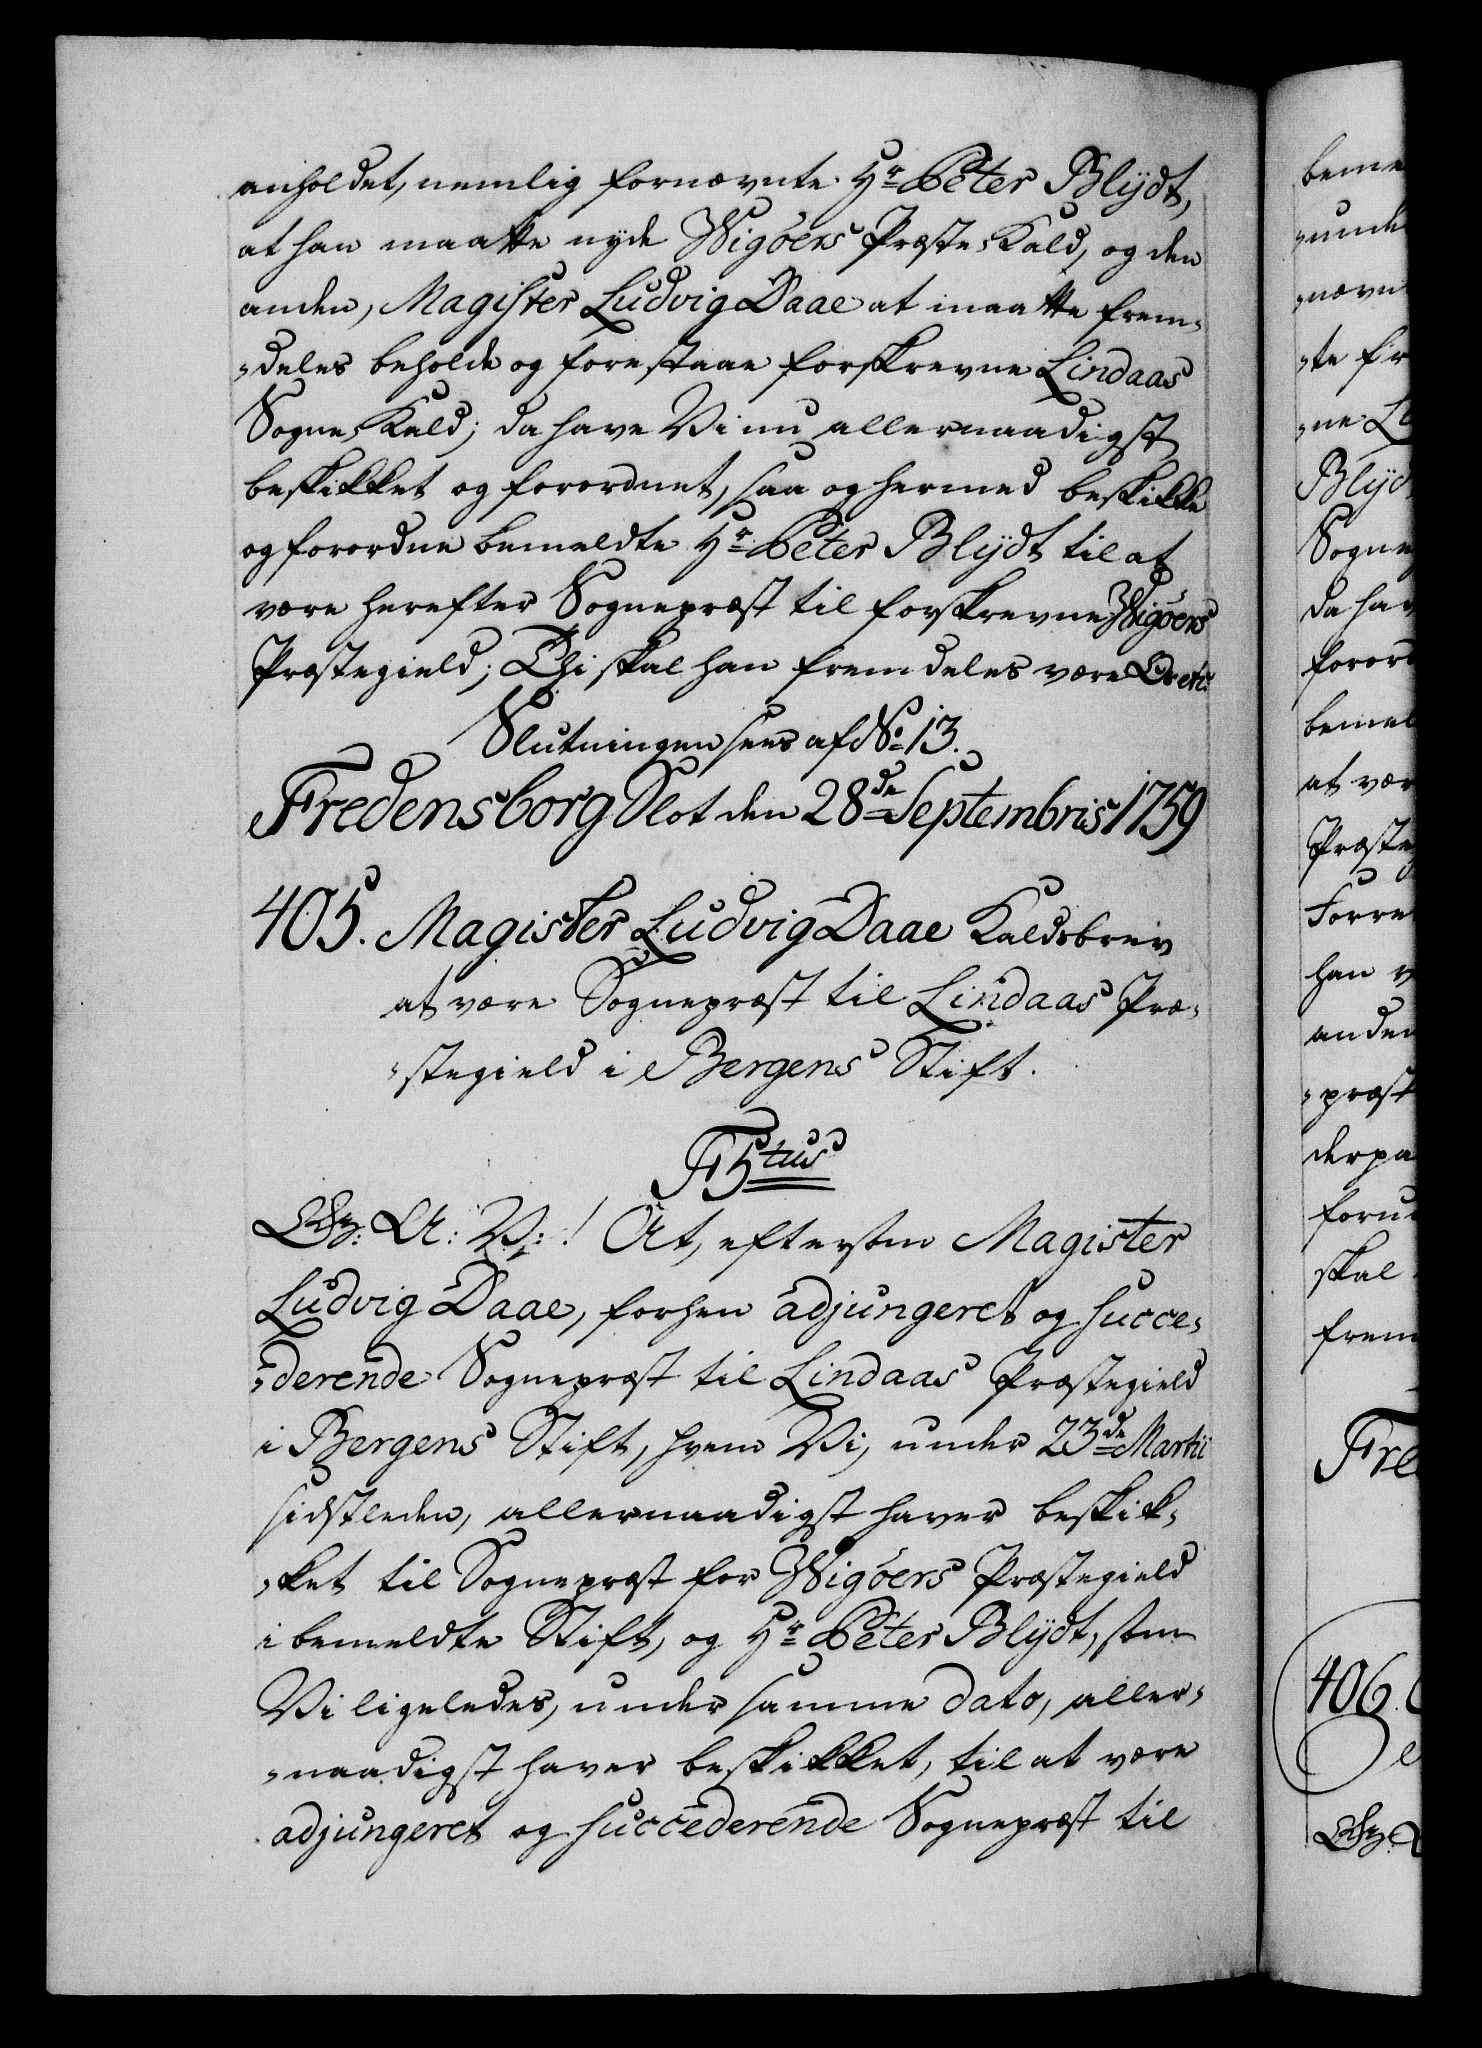 anholdet, nemlig fornævnte Hr Peter Blÿdt,
at han maatte nyde Wigöers Præste-Kald, og den
anden, Magister Ludvig Daae at maatte frem-
-deles beholde og forestaae forskrevne Lindaas
Sogne-Kald; da have Vi nu allernaadigst
beskikket og forordnet, saa og hermed beskikke
og forordne bemeldte Hr Peter Blÿdt til at
være herefter Sognepræst til forskrevne Wigöers
Præstegield; Thi skal han fremdeles være Os etc:
Slutningen sees af No 13.
Fredensborg Slot den 28de Septembris 1759
405. Magister Ludvig Daae Kaldsbrev
at være Sognepræst til Lindaas Præ-
-stegield i Bergens Stift.
F5tus
G: A: V: ! At, eftersom Magister
Ludvig Daae, forhen adjungeret og succe-
-derende Sognepræst til Lindaas Præstegield
i Bergens Stift, hvem Vi, under 23de Martii
sidstleden, allernaadigst haver beskik-
-ket til Sognepræst for Wigöers Præstegield
i bemeldte Stift, og Hr Peter Blÿdt, som
Vi ligeledes, under samme dato, aller-
-naadigst haver beskikket, til at være
adjungeret og succederende Sognepræst til
beme
-unde
-nævn
-te fr
-ne L
Blÿd
Sogne
da hav
forord
bemel
at vær
Præste
Forre
han v
anden
-præst
derpa
foru
skal
frem
Fre
406.